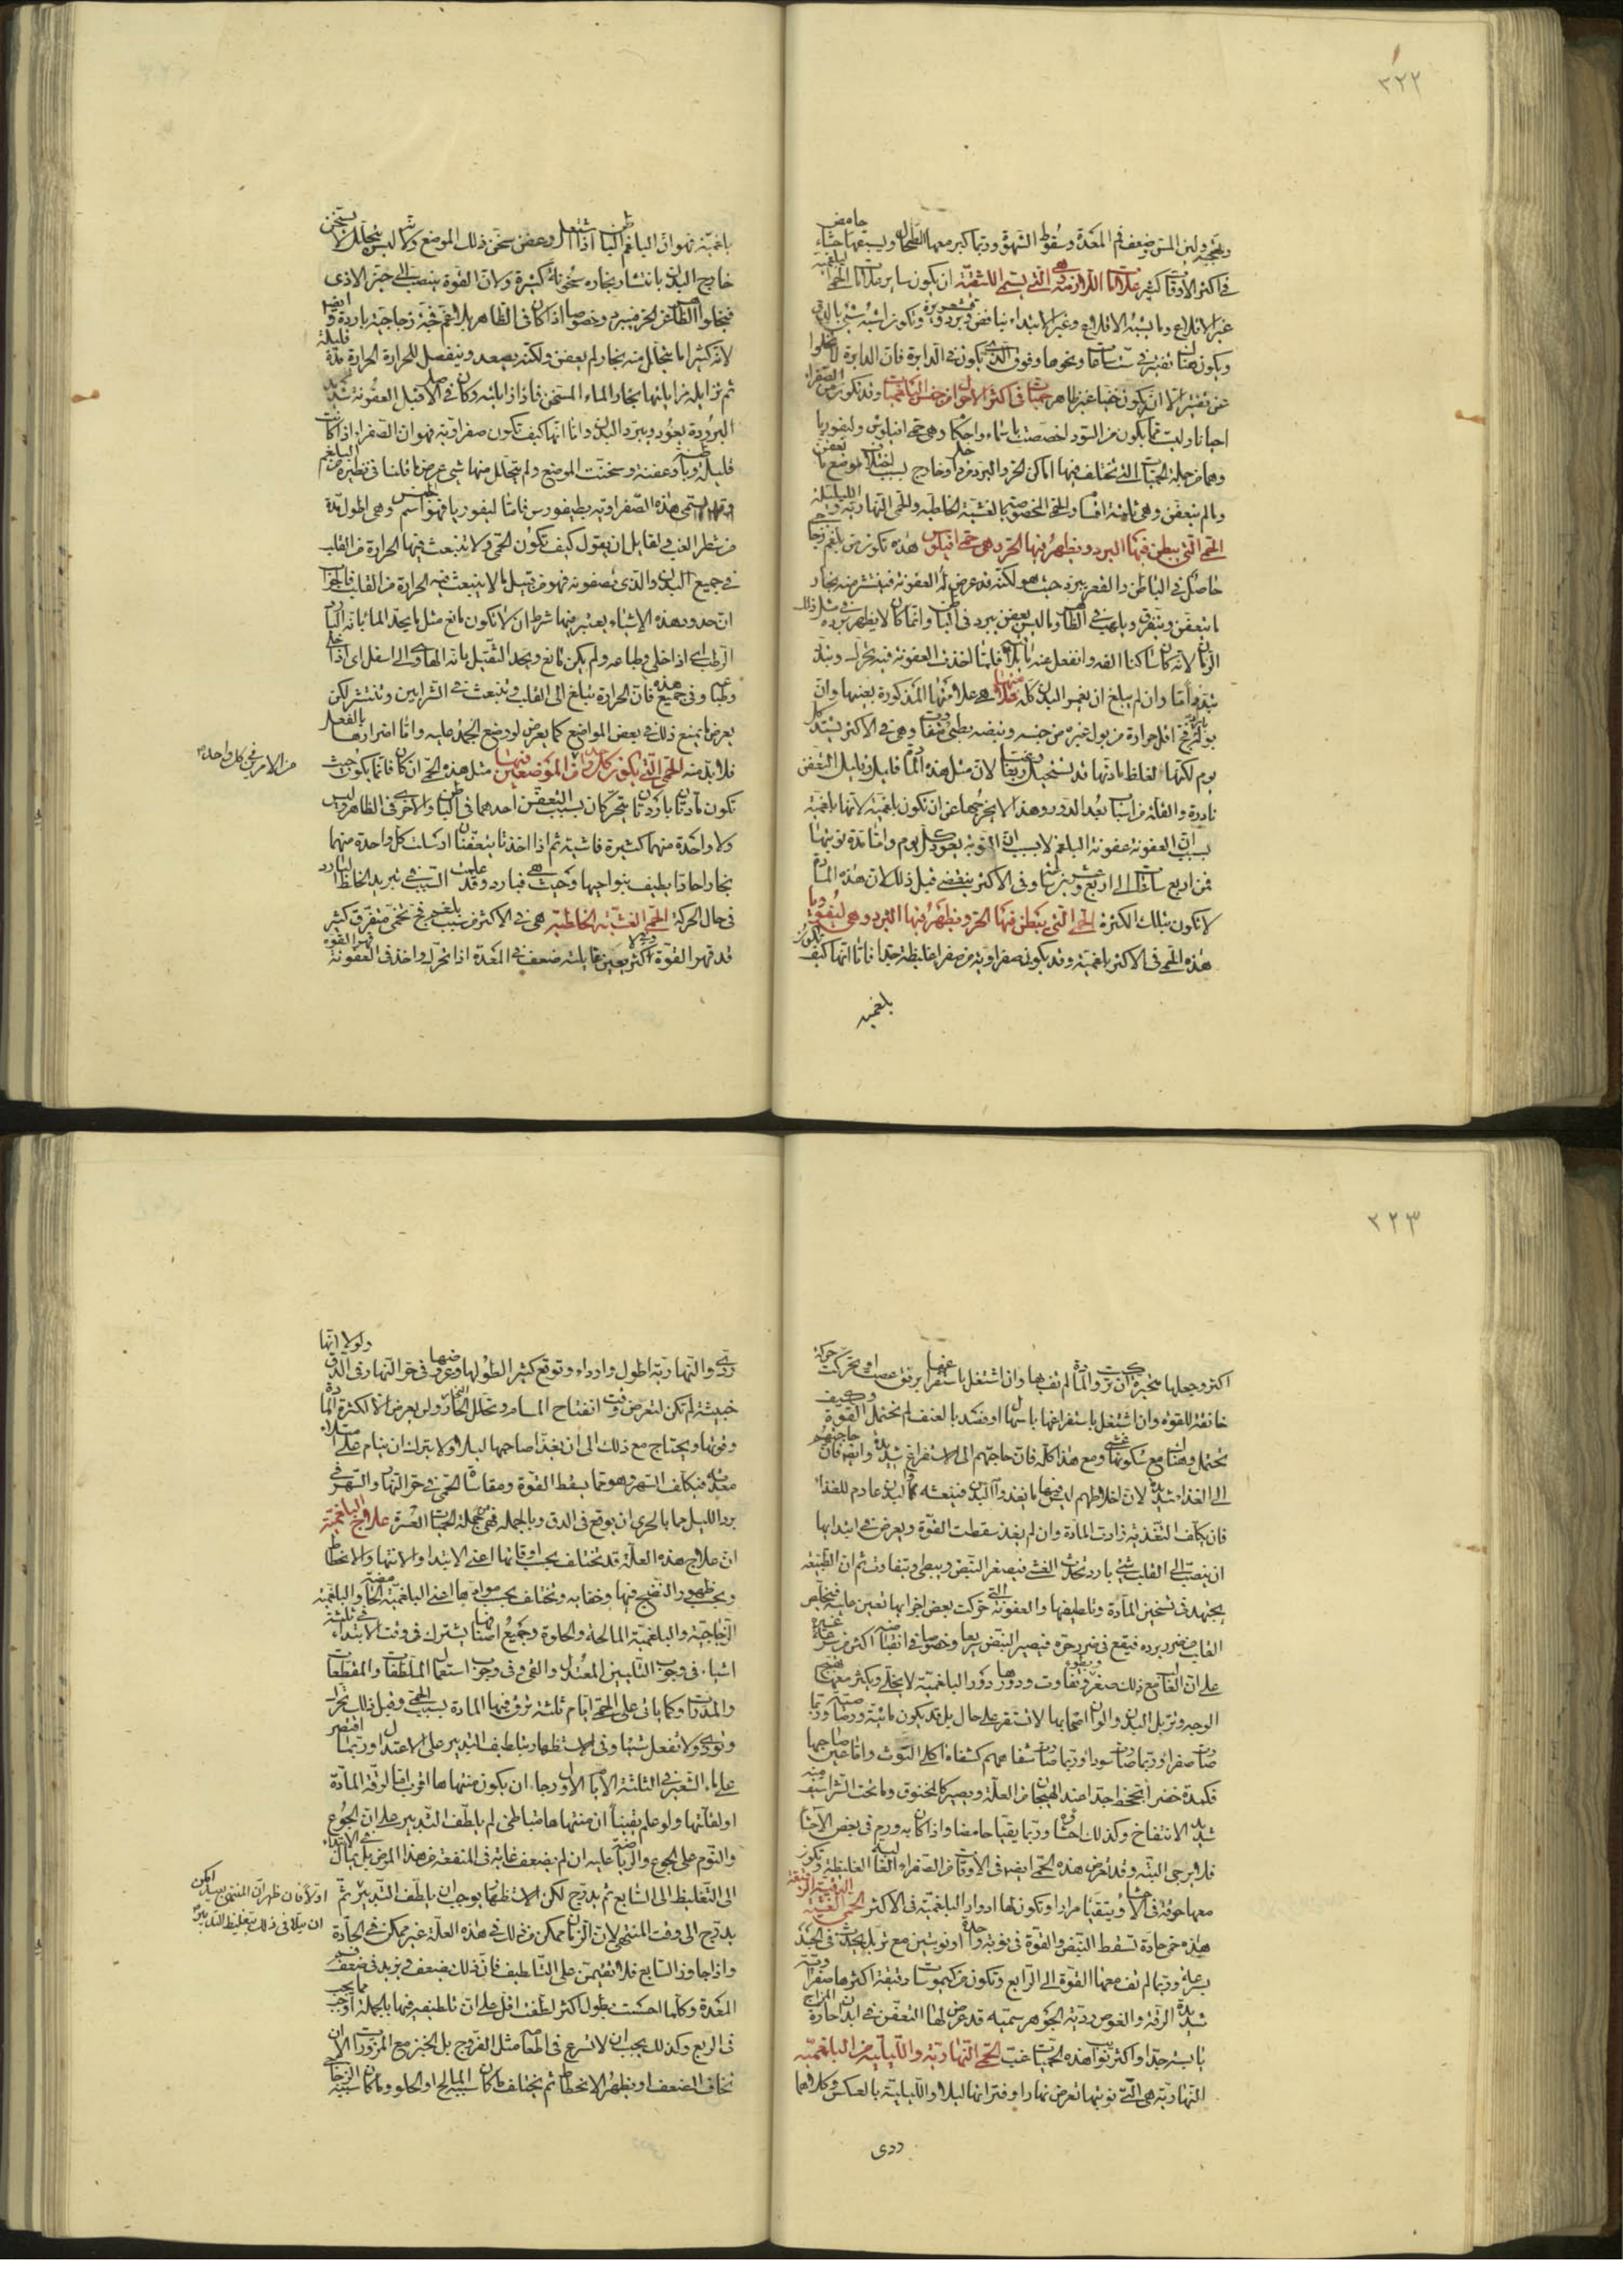 ٣٢٢
وتهيجه ولين المس وضعف فم المعدة وسقوط الشهوة وربما كبر معها الطحال ويسبقها جشاء حامض
في اكثر الاوقات كثير علامات اللازمة وهي التي تسمى اللثقة ان يكون سائر علامات الحمى البلغمية
غير الاقلاع وما يشبه الاقلاع وغير الابتداء بنافض وبرد وقشعريرة وتكون اشبه شيء بالدق
ويكون هناك تفتير في ست ساعات ونحوها وفوق الذي يكون في الدايرة فان الدايرة لا تخلوا
عن تفتير الا ان يكون خفيا غير ظاهر حميات في اكثر الاحوال من جنس البلغميات وقد تكون من الصفراء
احيانا وليست مما يكون من السوداء خصصت باسماء واحكام وهي حمى انفيالوس وليفوريا
وهما من جملة الحميات التي تختلف فيها اماكن الحر والبرد من داخل وخارج بسبب اختلاف موضع ما تعفن
وما لم يتعفن وهي ثلثة اقسام والحمى المخصوصة بالغشية الخلطية والحمى النهارية والليلية
الحمى التي يبطن فيها البرد ويظهر فيها الحر وهي حمى انفيالوس هذه تكون من بلغم زجاجي
حاصل في الباطن والقعر يبرد حيث هو لكنه قد عرض له العفونة فينتشر منه بخار
ما يتعفن ويتفرق ويلهب في الظاهر وما ليس يعفن يبرد في الباطن وانما كان لا يظهر برده في مثل ذلك
الزمان لانه كان ساكنا الفه وانفعل عنه ما يلاقيه فلما اخذت العفونة فيه تحرك وتبدد
تبددا ما وان لم يبلغ ان يغمر البدن كله علاماتها هي علاماتها المذكورة بعينها وان
بولها نج اقل حرارة من بول غيره من جنسه ونبضه بطيء متفاوت وهي في الاكثر تشتد كل
يوم لكنها لغلظ مادتها قد تستحيل ربعا وغبا لان مثل هذه المادة قليل وقليل التعفن
نادرة والقلة من اسباب بعد الدور وهذا لا يخرجها عن ان تكون بلغمية لانها بلغمية
بسبب ان العفونة عفونة البلغم لا بسبب ان النوبة تعود كل يوم واما مدة نوبتها
فمن اربع ساعات الى اربع وعشرين وفي الاكثر ينقضي قبل ذلك لان هذه المادة
لا تكون بتلك الكثيرة الحمى التي يبطن فيها الحر ويظهر فيها البرد وهي ليفوريا
هذه الحمى في الاكثر بلغمية وقد يكون صفراوية من صفراء غليظة جدا فاما انها كيف تكون
بلغمية
بلغمية فهو ان البلغم الباطن اذا اشتعل وعفن سخن ذلك الموضع ولانه ليس يتحلل لا يسخن
خارج البدن بانتشار بخاره سخونة كثيرة ولان القوة ينصب الى حيز الاذى
فيخلوا الظاهر عن الحر فيبرد وخصوصا اذا كان في الظاهر بلاغم فجة زجاجية باردة وايضا
لانه كثيرا ما يتحلل منه بخار لم يعفن ولكنه يصعد وينفصل للحرارة الحرارة مدة قليلة
ثم تزايله مزايلتها بخار الماء المسخن فاذا زايلته وكان في الاصل قبل العفونة شديد
البرودة يعود ويبرد البدن واما انها كيف تكون صفراوية فهو ان الصفراء اذا كانت
قليلة وباطنة وعفنة وسخنت الموضع ولم يتحلل منها شيء عرض ما قلنا في نظيره من البلغم
وقوم يسمى هذه الصفراوية بطيفورس فاما ليفوريا فهو اسم الجنس وهي اطول مدة
من شطر الغب ولقايل ان يقول كيف تكون الحمى ولا ينبعث فيها الحرارة من القلب
في جميع البدن والذي تصفونه فهو من قبيل ما لا ينبعث فيه الحرارة من القلب فالجواب
ان حدود هذه الاشياء يعتبر فيها شرط ان لا تكون مانع مثل ما يحد الماء بانه البارد
الرطب اي اذا خلي وطباعه ولم يكن مانع ويحد الثقيل بانه الهاوي الى اسفل اي اذا خلي
وطباعه وفي جميع هذه فان الحرارة تبلغ الى القلب وتنبعث في الشرايين وتنتشر لكن
يعرض ما يمنع ذلك في بعض المواضع كما يعرض لو وضع الجمد عليه واما اضرارها بالفعل
فلا بد منه الحمى التي يكون كل واحد من الموضعين فيها مثل هذه الحمى ان كان فانما يكون حيث
تكون مادتان باردتان يتحركان بسبب التعفن احدهما في الباطن والاخرى في الظاهر وليس
ولا واحدة منهما كثيرة فاشية ثم اذا اخذتا يتعفنان ارسلت كل واحدة منهما
بخارا حادا يطيف بنواحيها وحيث هي فبارد وقد علمت السبب في تبريد الخلط البارد
في حال الحركة الحمى الغشية الخلطية هي في الاكثر من سبب بلغم فج تخمي متفرق كثير
قد قهر القوة اكثر بعين غايلته ضعف في المعدة اذا تحرك واخذ في العفونة قهر القوة
من الامر في كل واحد
٣٢٣
اكثر وجعلها متحيرة ان تركت والمادة لم تف بها وان اشتغل باستفراغها برفق عصت او تحركت حركة
خانقة للقوة وان اشتغل باستفراغها باسهال او فصد بالعنف لم تحتمل القوة وكيف
تحتمل وهناك غشي مع سكونها ومع هذا كله فان حاجتهم الى الاستفراغ شديدة وايضا فان حاجتهم
الى الغذاء شديدة لان اخلاطهم ليس فيها ما يغذوا البدن فينعشه فالبدن عادم للغذاء
فان تكلف التغذية زادت المادة وان لم يغذ سقطت القوة ويعرض في ابتدايها
ان ينصب الى القلب شيء بارد يحدث الغشي فيصغر النبض ويبطئ ويتفاوت ثم ان الطبيعة
يجتهد في تسخين المادة وتلطيفها والعفونة التي حركت بعض اجزايها تعين عليه فيتخلص
القلب من ضرر برده فيقع في ضرر حره فيصير النبض سريعا وخصوصا في انقباضه اكثر من سرعة غيره
على ان الغالب مع ذلك صغر وتفاوت وبطوء ودورها دور البلغمية لا يخلي ويكثر معها تهيج
الوجه وتربل البدن والوان اصحابها لا تستقر على حال بل قد يكون مائية ورصاصية وربما
صارت صفراء وربما صارت سوداء وربما صارت شفاههم كشفاه اكل التوث واما عين صاحبها
فكمدة خضراء تجحظ جدا عند الهيجان من العلة ويصير كالمخنوق وما تحت الشراسيف منه
شديد الانتفاخ وكذلك احشاؤه وربما يقيا حامضا واذا كان به ورم في بعض الاحشاء
فلا يرجى البتة وقد تعرض هذه الحمى ايضا في الاوقات من الصفراء الغالبة الغليظة وتكون
معها حرقة في الاحشاء ويتقيا مرارا وتكون لها ادوار البلغمية في الاكثر الحمى الغشية الدقيقة الرقيقة
هذه حمى حادة تسقط النبض والقوة في نوبة واحدة او نوبتين مع تربل يحدث في الجسد
بسرعة وربما لم تف معها القوة الى الرابع وتكون من كيموسات رقيقة اكثرها صفراوية
شديدة الرقة والغوص ردية الجوهر سمية قد عرض لها التعفن في ابدان حارة المزاج
يابسة جدا واكثر نوايب هذه الحميات غب الحمى النهارية والليلية من البلغمية
النهارية هي التي نوبتها تعرض نهارا وفترانها ليلا والليلية بالعكس وكلاهما
ردى
ردي والنهارية اطول واردا وتوقع كثيرا لطولها وعروضها في حر النهار في الدق ولولا انها
خبيثة لم تكن لتعرض وقت انفتاح المسام وتحلل البخار ولن يعرض الا لكثرة المادة
وقوتها ويحتاج مع ذلك الى ان يغذا صاحبها ليلا ولا يترك ان ينام على امتلاء
معدته فيكلف السهر وهو مما يسقط القوة ومقاساة الحمى في حر النهار والسهر في
برد الليل مما بالحري ان يوقع في الدق وبالجملة فهي من جملة الحميات العسرة علاج البلغمية
ان علاج هذه العلة قد تختلف بحسب اوقاتها اعني الابتداء والانتهاء والانحطاط
وبحسب ظهور النضج فيها وخفايه وتختلف بحسب موادها اعني البلغمية الحامضة والبلغمية
الزجاجية والبلغمية المالحة والحلوة وجميع اصنافها يشترك في وقت الابتداء في ثلثة
اشياء في وجوب التليين المعتدل والقيء وفي وجوب استعمال الملطفات والمقطعات
والمدرات وكما ياتي على الحمى ايام ثلثة ترق فيها المادة بسبب الحمى وقبل ذلك تحرك
وتؤذي ولا تفعل شيئا وفي الاستظهار بتلطيف التدبير على الاعتدال وربما اقتصر
على ماء الشعير في الثلثة الايام الاول رجاء ان يكون منتهاها اقرب اما لرقة المادة
او لقلتها ولو علم يقينا ان منتهاها متباطئ لم يلطف التدبير على ان الجوع
والنوم على الجوع والرياضة عليه ان لم يضعف غاية في المنفعة من هذا المرض بل يمال في الابتداء
الى التغليظ الى السابع ثم يدرج لكن الاستظهار يوجب ان يلطف التدبير ثم
يدرج الى وقت المنتهى لان الزمان ممكن من ذلك في هذه العلة غير ممكن في الحادة
واذا جاوز السابع فلا تقيمن على التلطيف فان ذلك يضعف ويزيد في ضعف فم
المعدة وكلما احسست بطول اكثر لطفت اقل على ان تلطيفه فيها بالجملة اوجب مما يجب
في الربع وكذلك يجب ان لا تسرع في اطعامه مثل الفروج بل الخبز مع المزورات الا ان
تخاف الضعف او يظهر الانحطاط ثم يختلف ما كان سببه المالح او الحلو وما كان سببه الزجاجي
اولا فان ظهر ان المنتهى بعيد امكن
ان يتلافى ذلك بتغليظ التدبير